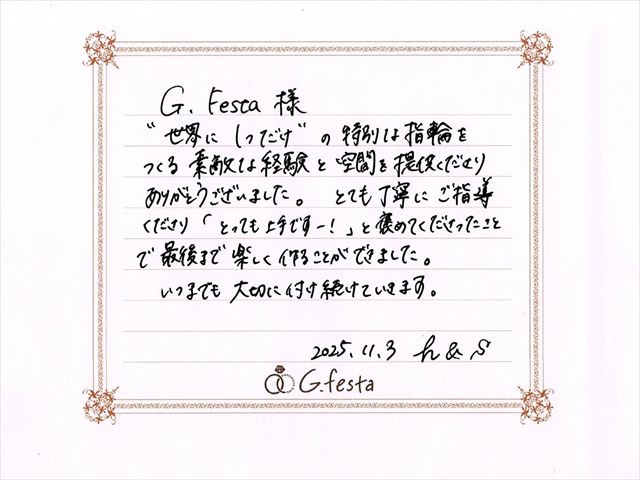 G. Festa 様
"世界に1つだけ" の特別な指輪を
つくる素敵な経験と空間を提供くださり
ありがとうございました。 とても丁寧にご指導
くださり「とっても上手ですー!」と褒めてくださったこと
で最後まで楽しく作ることができました。
いつまでも大切に付け続けていきます。
2025.11.3 h & S
G.festa